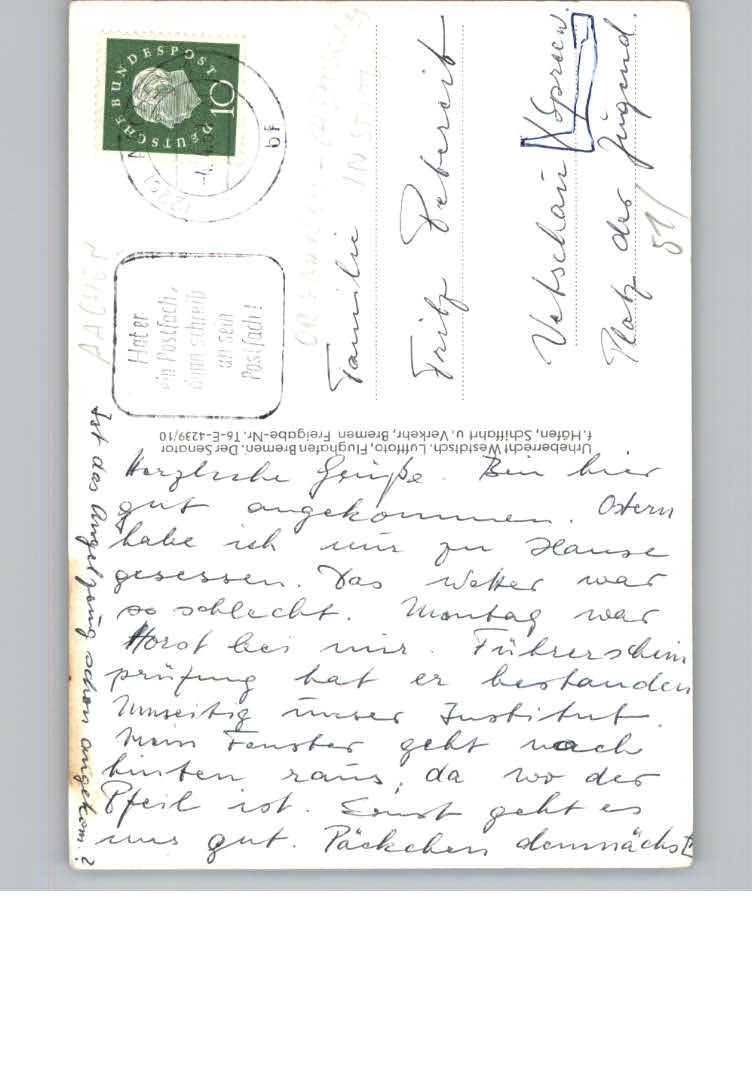 Herzliche Grüße. Bin hier
gut angekommen. Ostern
habe ich nur zu Hause
gesessen. Das Wetter war
so schlecht. Montag war
Horst bei mir. Führerschein
prüfung hat er bestanden
Umseitig unser Institut.
Mein Fenster geht nach
hinten raus, da wo der
Pfeil ist. Sonst geht es
uns gut. Päckchen demnächst
Ist das Angelzeug schon angekom.?
Urheberrecht Westdtsch. Luftfoto, Flughafen Bremen. Der Senator
f. Häfen, Schiffahrt u. Verkehr, Bremen Freigabe-Nr. T6-E-4239/10
DEUTSCHE BUNDESPOST
10
(22c)
bf
Hat er
ein Postfach,
dann schreib
an sein
Postfach!
AACHEN
INSTIT
Familie
Fritz Petereit
Vetschau / Spreew.
Platz der Jugend.
51/